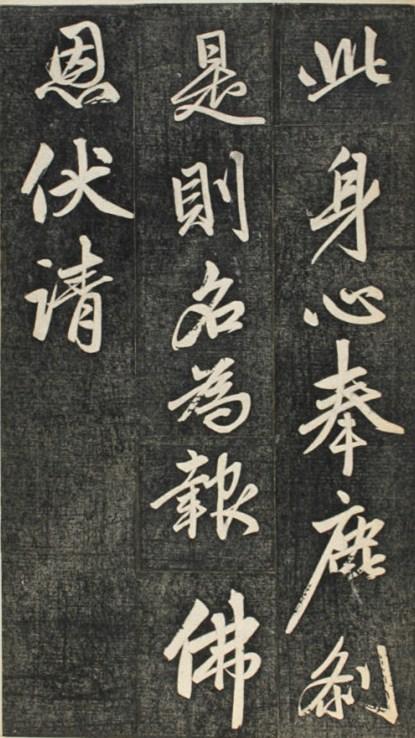 此身心奉塵刹
是則名為報佛
恩伏请